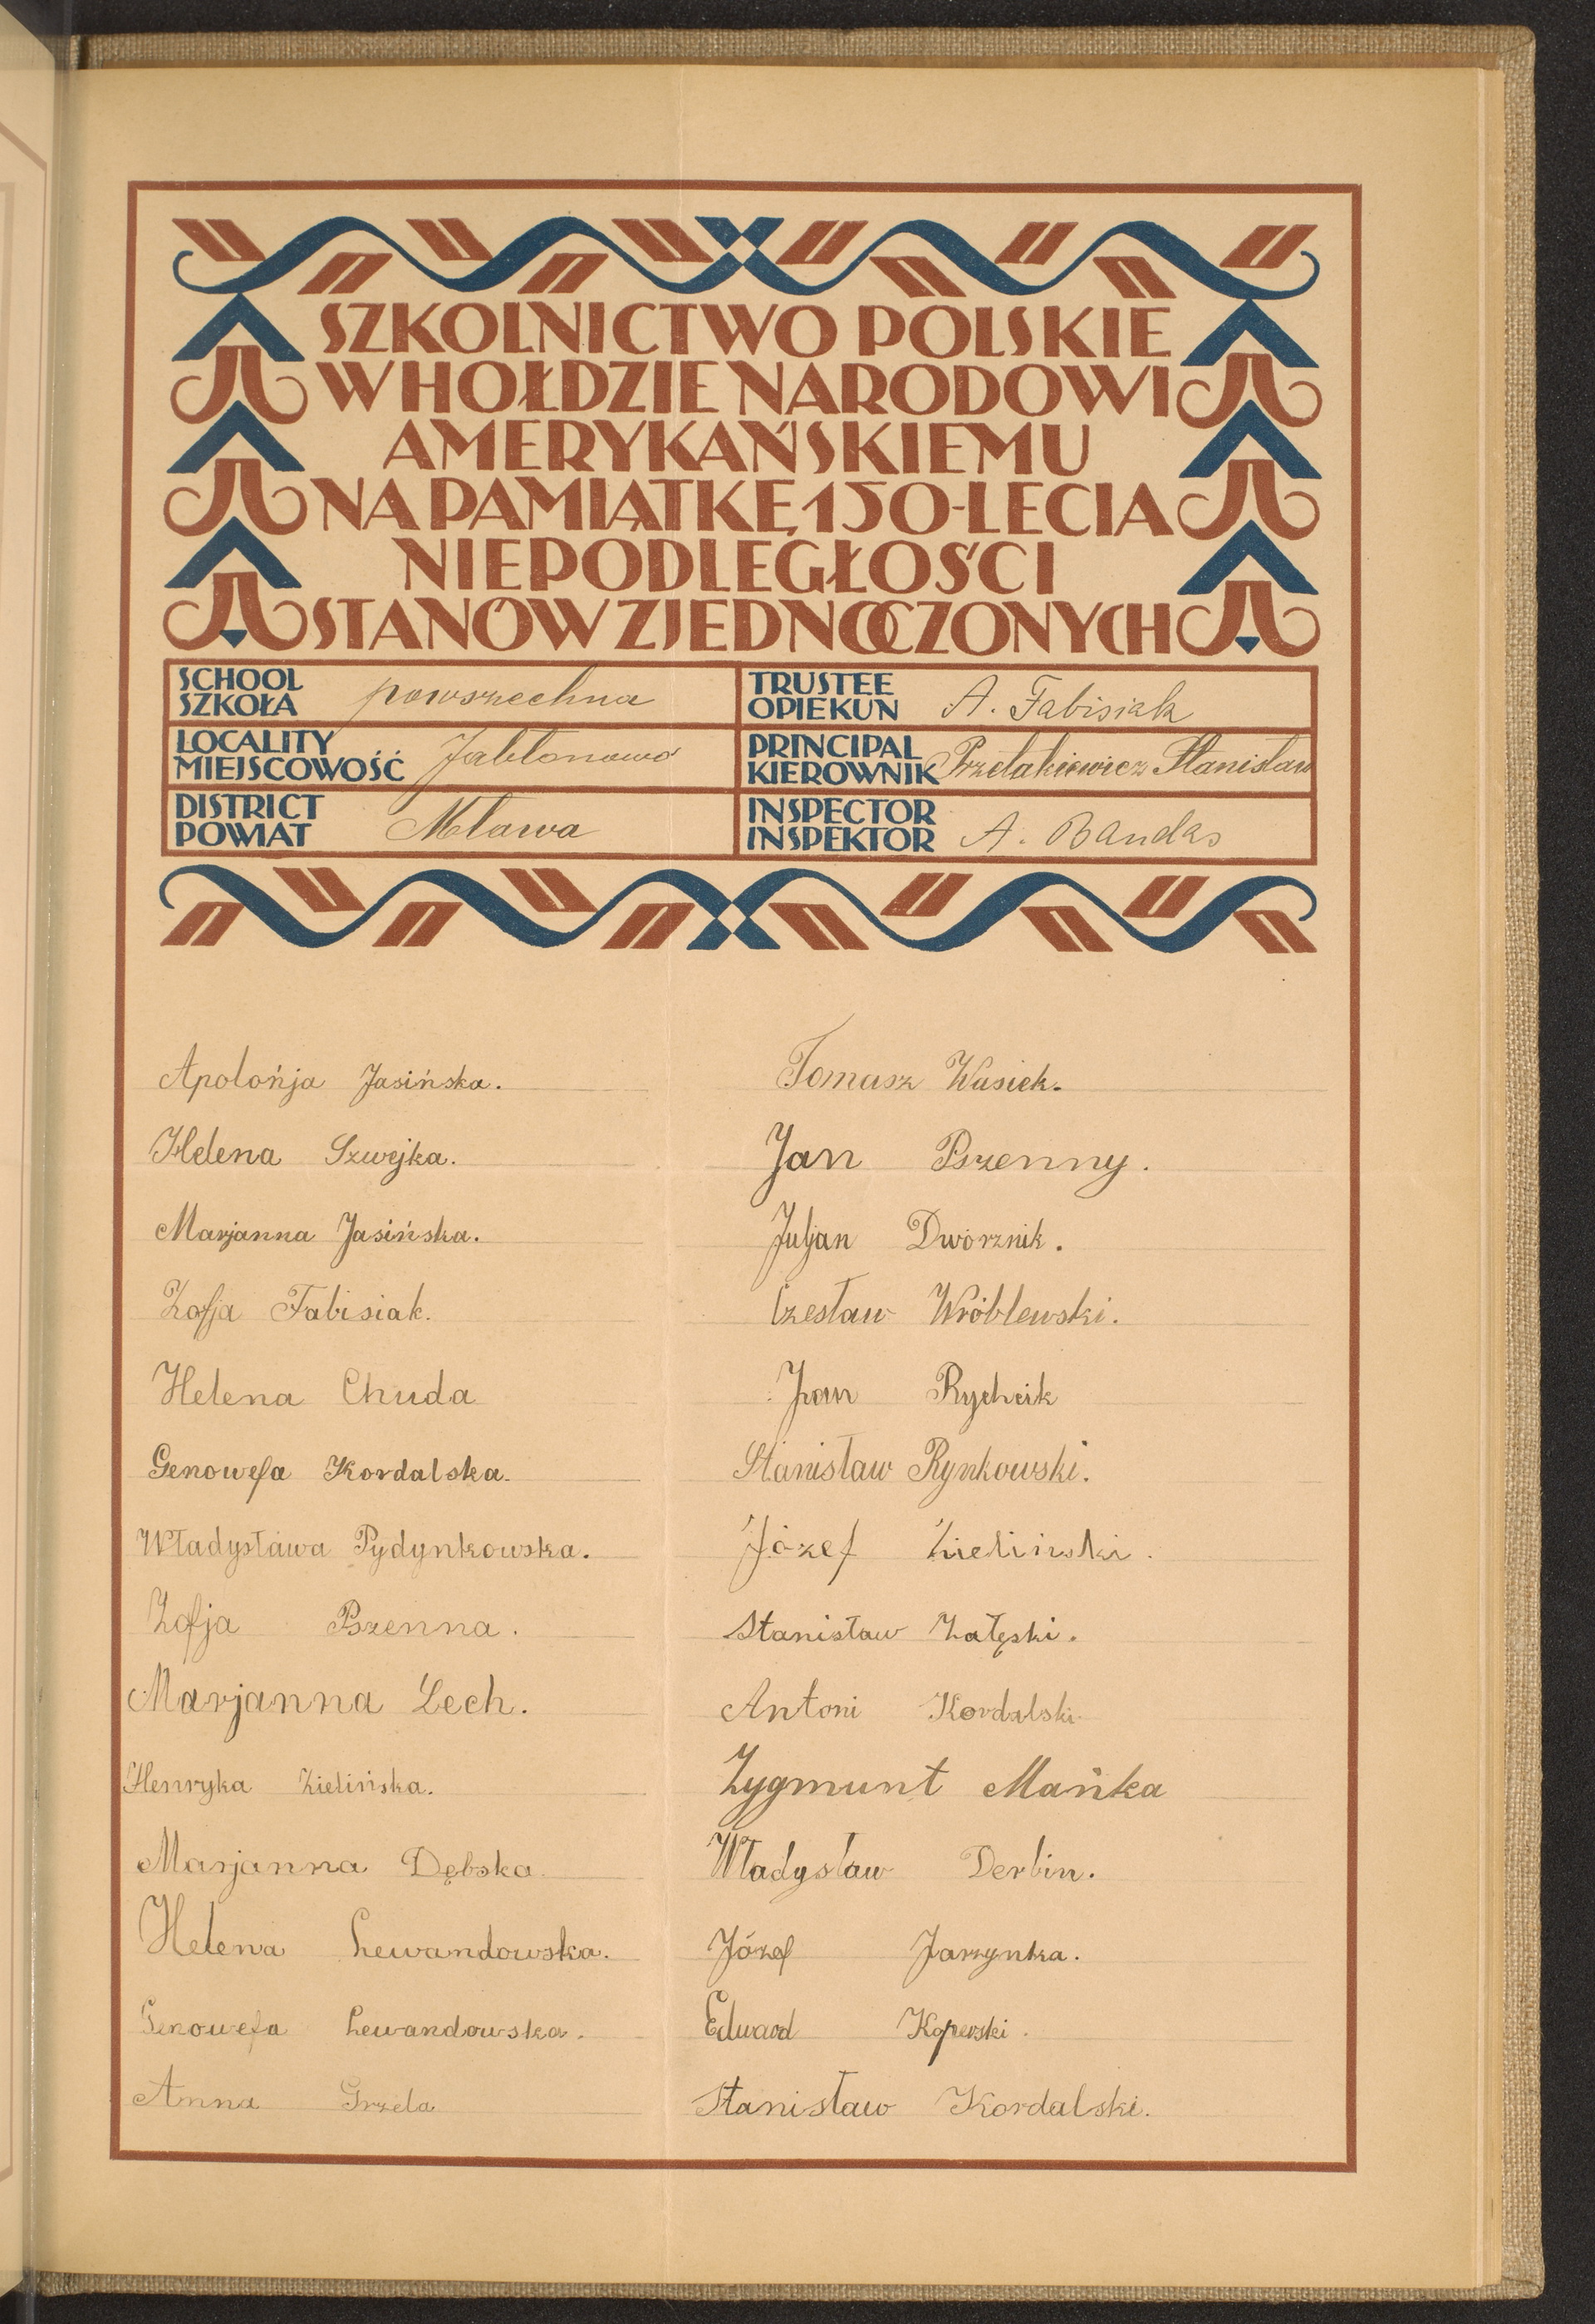 SZKOLNICTWO POLSKIE
W HOŁDZIE NARODOWI
AMERYKAŃSKIEMU
NA PAMIĄTKĘ 150-LECIA
NIEPODLEGŁOŚCI
STANÓW ZJEDNOCZONYCH
SCHOOL
SZKOŁA powszechna
TRUSTEE
OPIEKUN A. Fabisiak
LOCALITY
MIEJSCOWOŚĆ Jabłonowo
PRINCIPAL
KIEROWNIK Przelakiewicz Stanisław
DISTRICT
POWIAT Mława
INSPECTOR
INSPEKTOR A. Bandas
Apolońja Jasińska.
Helena Szwejka.
Marjanna Jasińska.
Zofja Fabisiak.
Helena Chuda
Genowefa Kordalska.
Władysława Pydynkowska.
Zofja Pszenna.
Marjanna Lech.
Henryka Zielińska.
Marjanna Dębska.
Helena Lewandowska.
Genowefa Lewandowska.
Anna Grzela
Tomasz Wasiek.
Jan Pszenny.
Juljan Dwórznik.
Czesław Wróblewski.
Jan Rychcik
Stanisław Rynkowski.
Józef Zieliński.
Stanisław Załęski.
Antoni Kordalski.
Zygmunt Mańka
Władysław Derbin.
Józef Jarzynka.
Edward Koperski.
Stanisław Kordalski.